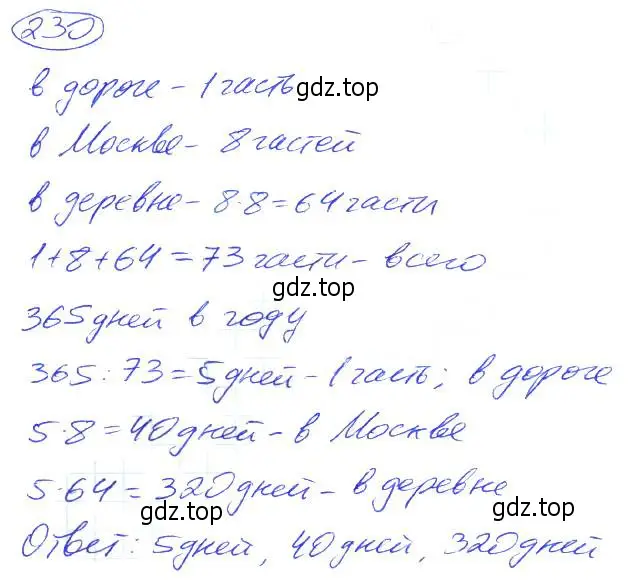 230
в дороге - 1 часть
gdz.top
в Москве - 8 частей
в деревне - 8·8=64 части
1+8+64=73 части - всего
gdz.top
365 дней в году
365:73=5 дней - 1 часть; в дороге
5·8=40 дней - в Москве
5·64=320 дней - в деревне
gdz.top gdz.top
Ответ: 5 дней, 40 дней, 320 дней